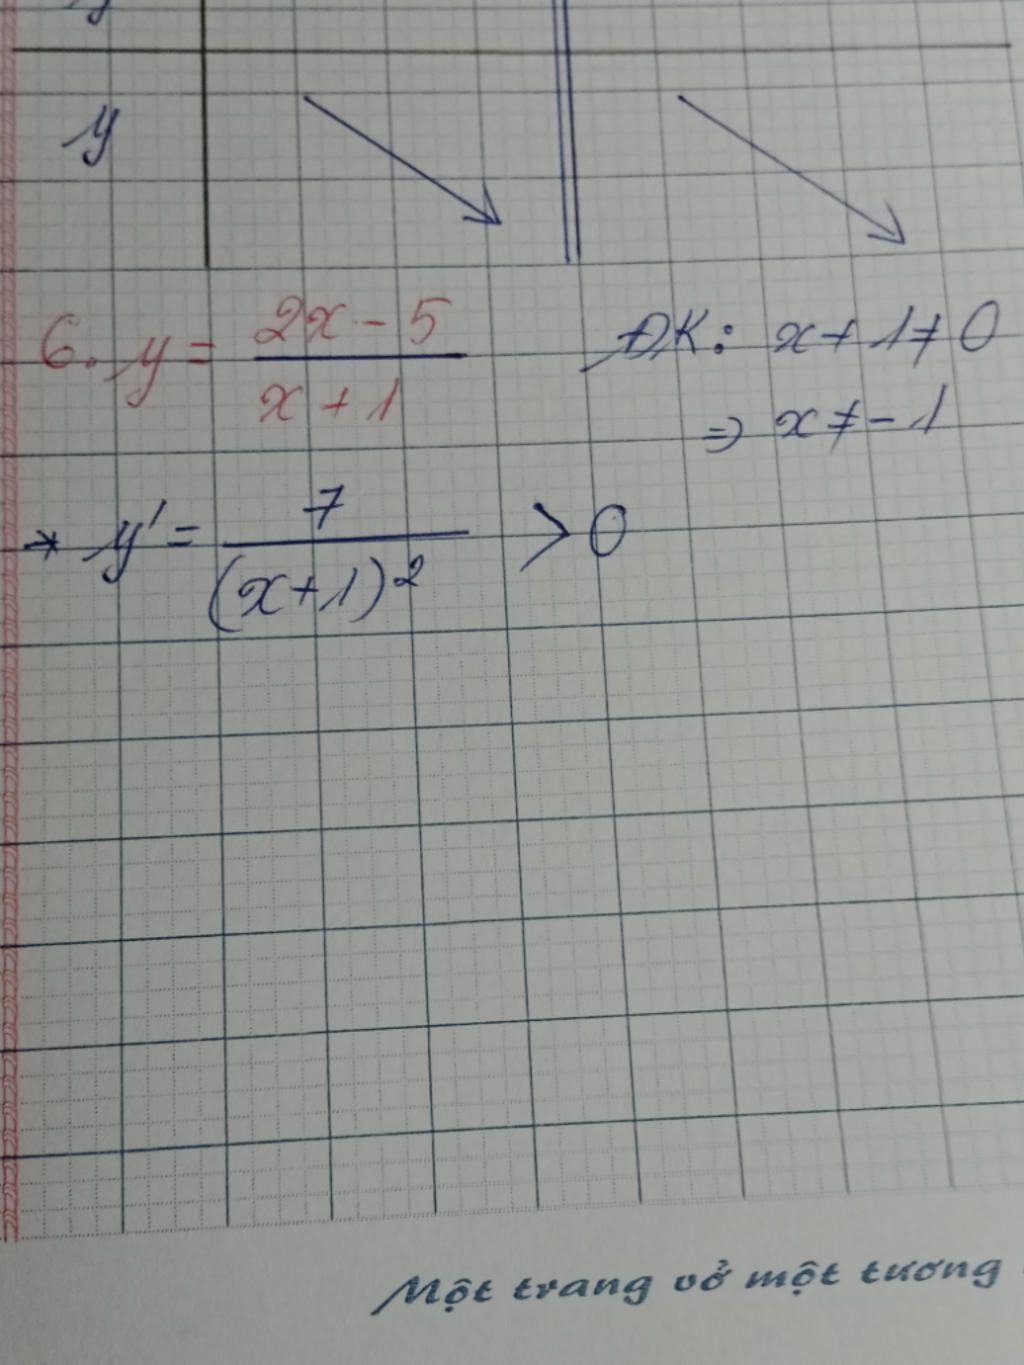 y
6. y = (2x - 5)/(x + 1) ĐK: x + 1 ≠ 0
⇒ x ≠ -1
* y' = 7/(x+1)² > 0
Một trang vở một tương